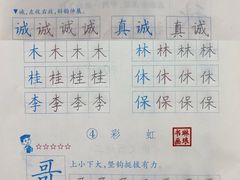 诚,左收右放,斜钩伸展。
诚 诚 诚 诚 真 诚 真 诚
木 木 木 木 林 林 林 林
桂 桂 桂 桂 休 休 休 休
李 李 李 李 保 保 保 保
④ 彩 虹
琳琳书画
☆☆☆☆☆
哥 上小下大,竖钩挺拔有力。